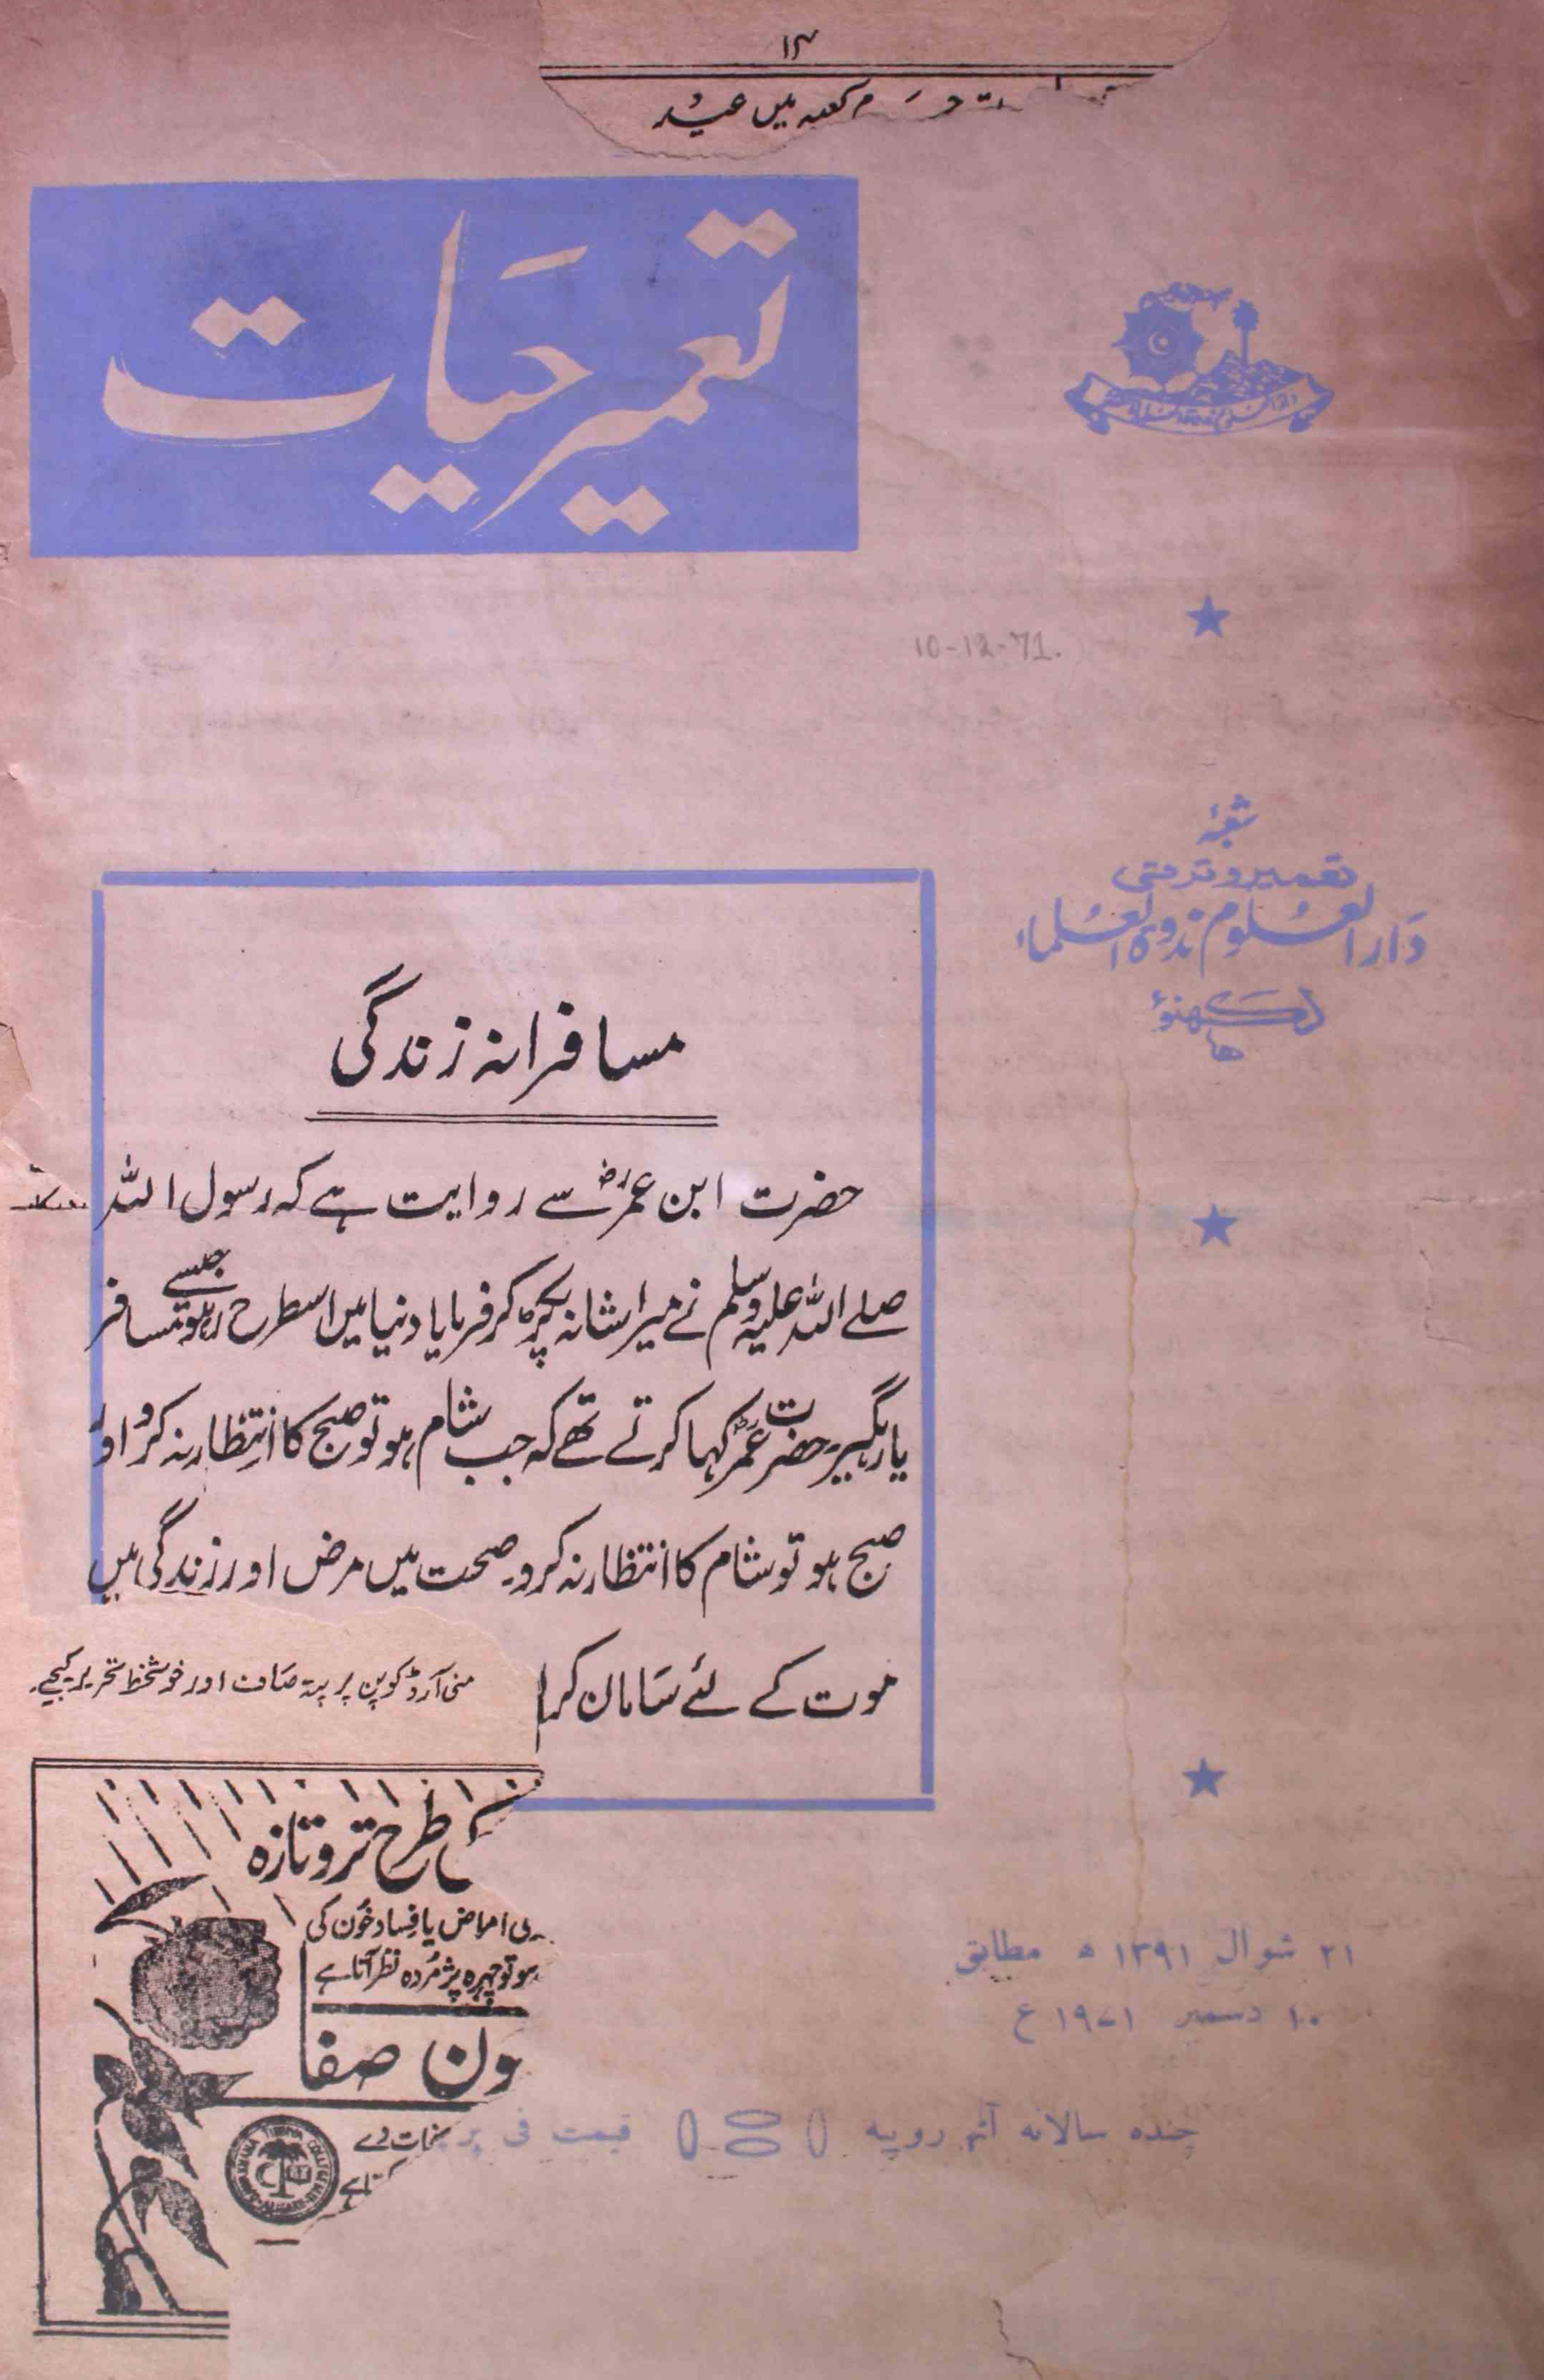 ۱۴
م کعبہ میں عید
تعمیر حیات
10-12-71.
شعبۂ
تعمیر و ترقی
دار العلوم ندوۃ العلماء
لکھنؤ
مسافرانہ زندگی
حضرت ابن عمرؓ سے روایت ہے کہ رسول اللہ
صلے اللہ علیہ وسلم نے میرا شانہ پکڑ کر فرمایا دنیا میں اسطرح رہو جیسے مسافر
یا رہگیر۔ حضرت عمرؓ کہا کرتے تھے کہ جب شام ہو تو صبح کا انتظار نہ کرو اور
صبح ہو تو شام کا انتظار نہ کرو۔ صحت میں مرض اور زندگی میں
موت کے لئے سامان کر
منی آرڈر کوپن پر پتہ صاف اور خوشخط تحریر کیجیے۔
طرح تروتازہ
امراض یا فساد خون کی
ہو تو چہرہ پژمردہ نظر آتا ہے
ون صفا
نجات دے
۲۱ شوال ۱۳۹۱ ھ مطابق
۱۰ دسمبر ۱۹۷۱ ع
چندہ سالانہ آٹھ روپیہ قیمت فی پر